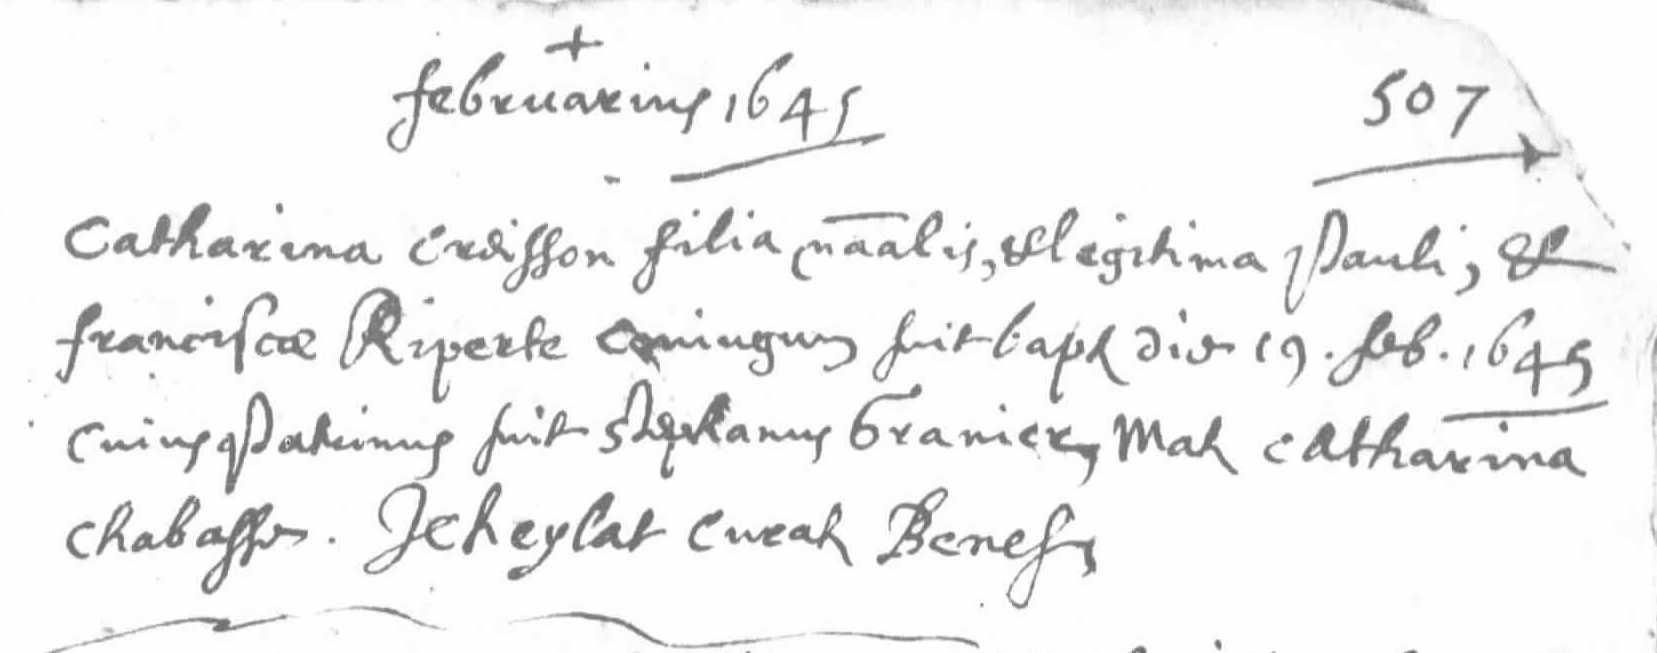 +
februarius 1645
507
Catharina Croisson filia nāalis, & legitima Pauli, &
franciscæ Riperte coniugum fuit bapt die 19. feb. 1645
cuius Patrinus fuit Stephanus Granier, Mat Catharina
chabasse. Jcheylat curat Benef